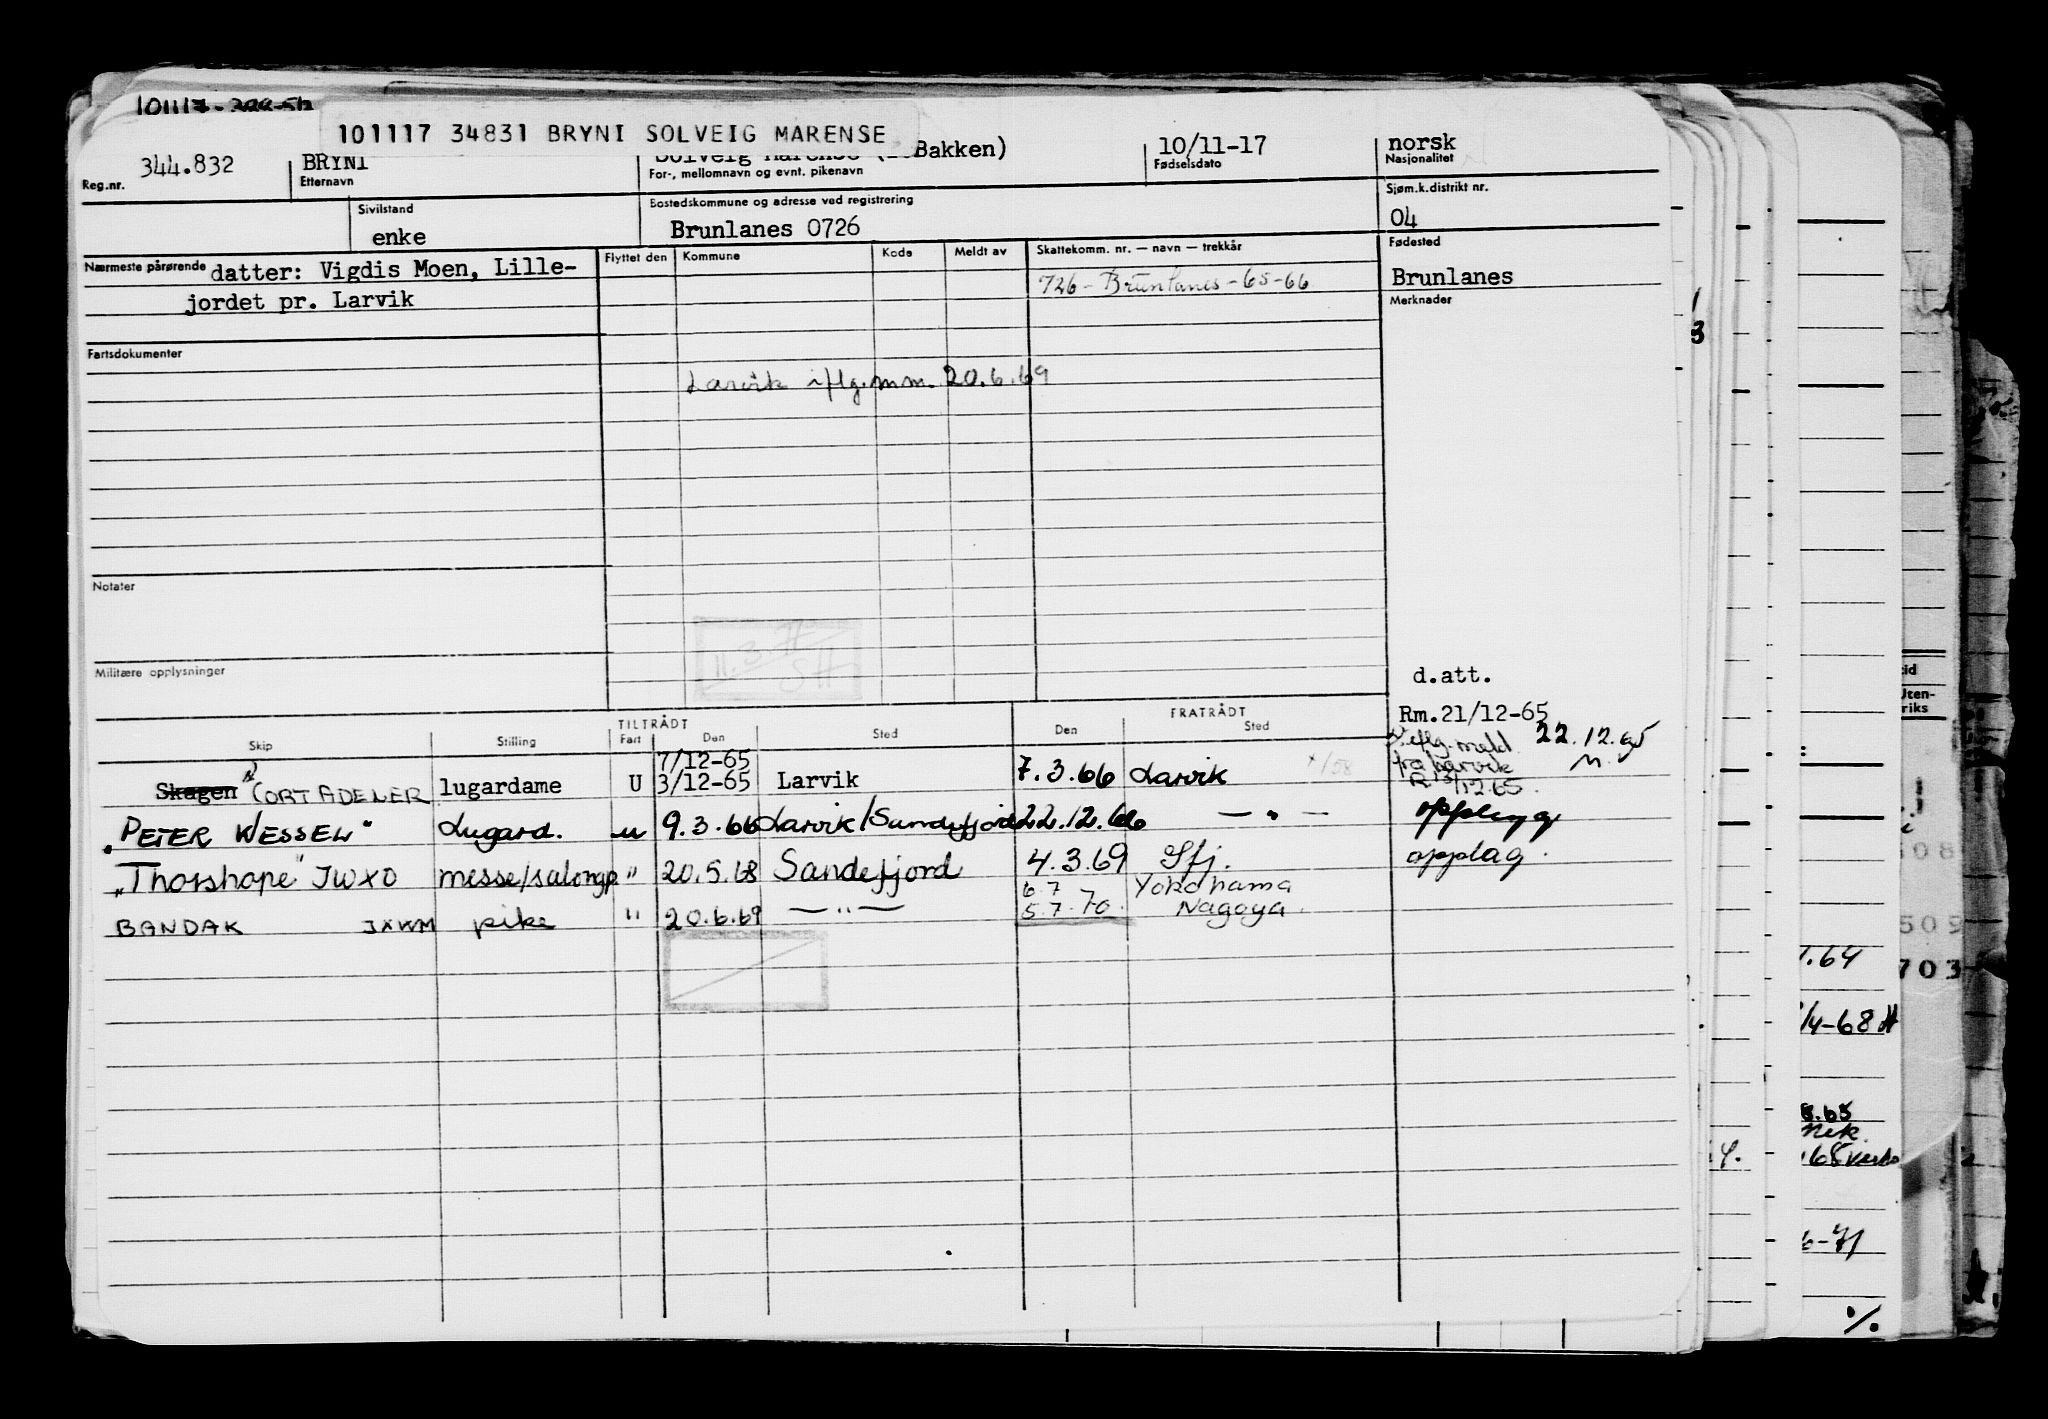 101117 34831 BRYNI SOLVEIG MARENSE
344.832 BRYNI Bakken) 10/11-17 norsk
Reg.nr. Etternavn For-, mellomnavn og evnt. pikenavn Fødselsdato Nasjonalitet
Sivilstand Bostedskommune og adresse ved registrering Sjøm.k.distrikt nr.
enke Brunlanes 0726 04
Nærmeste pårørende datter: Vigdis Moen, Lille- Flyttet den Kommune Kode Meldt av Skattekomm. nr. — navn — trekkår Fødested
jordet pr. Larvik 726 - Brunlanes - 65-66 Brunlanes
Merknader
Fartsdokumenter
Larvik iflg. mm. 20.6.69
Notater
11.3.71
SH
Militære opplysninger
d.att.
TILTRÅDT FRATRÅDT Rm.21/12-65
Skip Stilling Fart Den Sted Den Sted
iflg. meld. 22.12.65
fra Larvik M.
7/12-65
Skagen CORT ADELER lugardame U 3/12-65 Larvik 7.3.66 Larvik
"PETER WESSEL" Lugard. u 9.3.66 Larvik/Sandefjord 22.12.66 — " — opplegg
"Thorshope" JWXO messe/salongp. " 20.5.68 Sandefjord 4.3.69 Sfj. opplag.
6.7 Yokohama
BANDAK JXWM pike " 20.6.69 — " — 5.7.70. Nagoya.